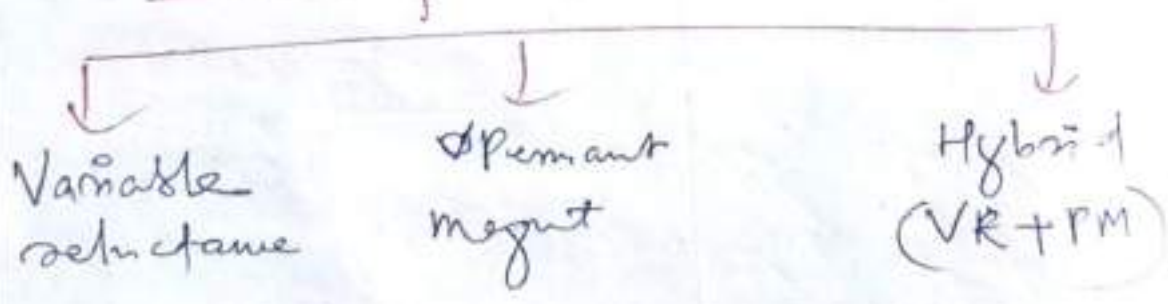 Variable
reluctance
Permant
magnt
Hybrid
(VR + PM)